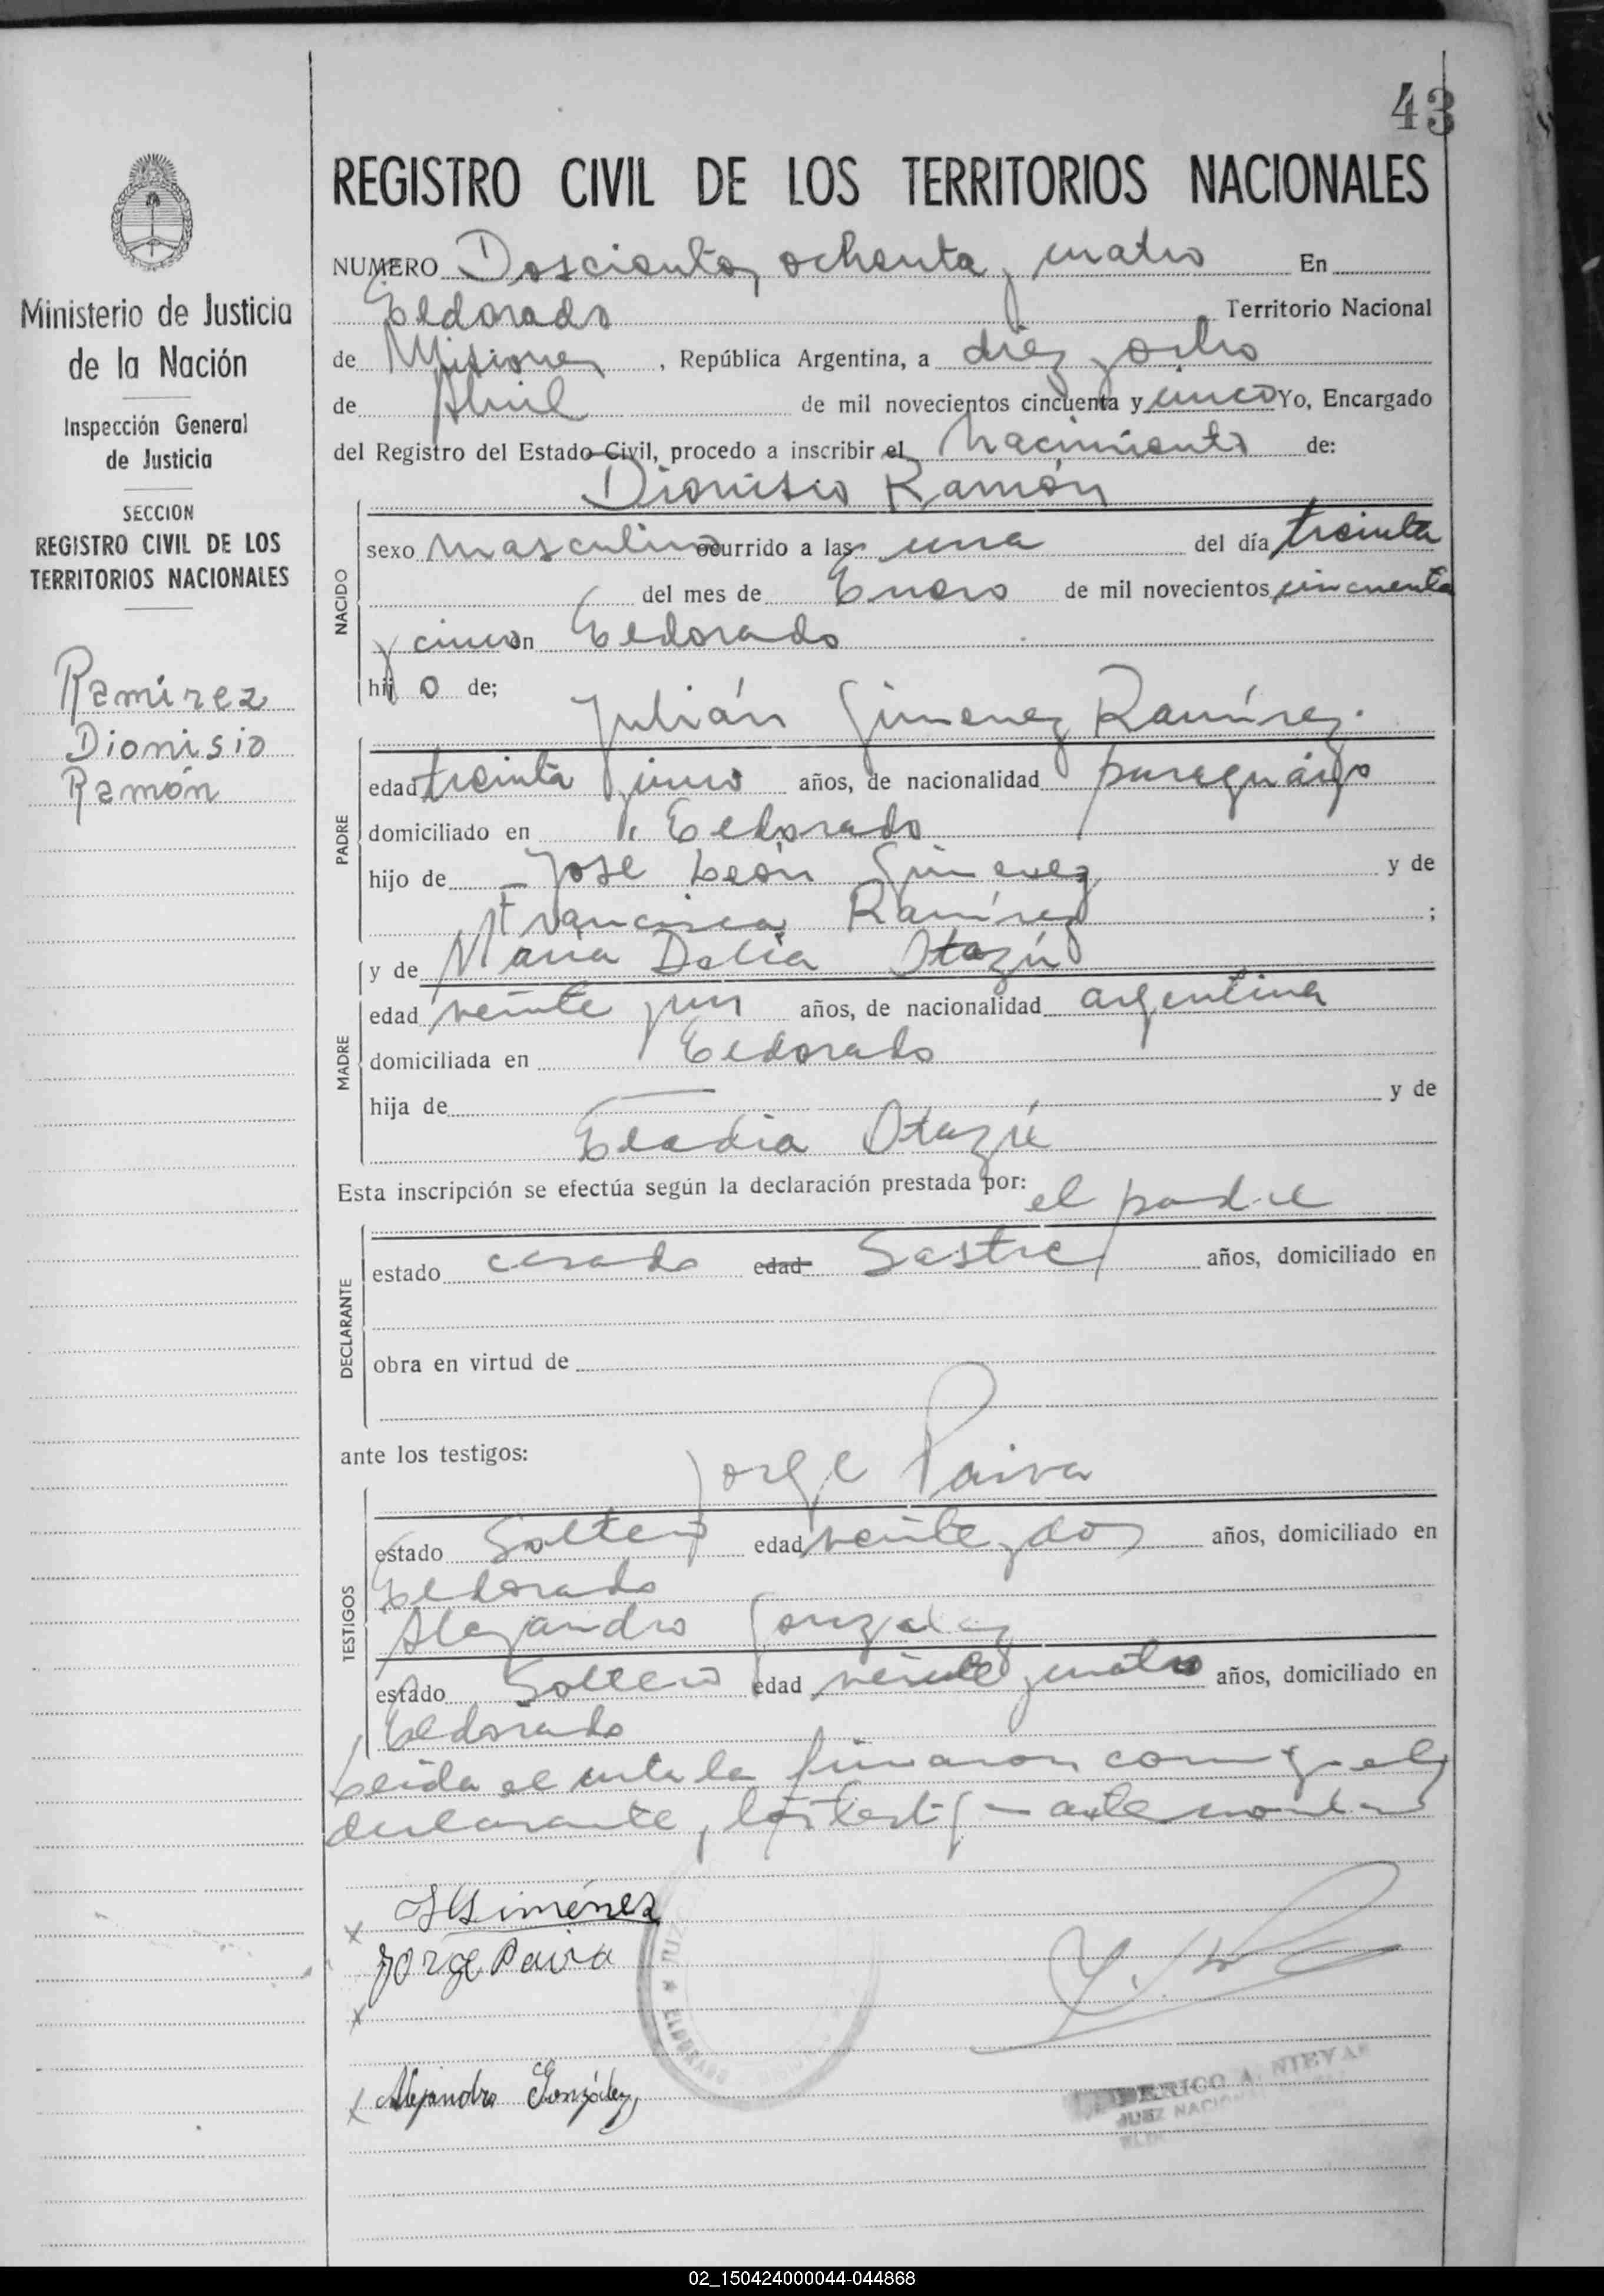 43
REGISTRO CIVIL DE LOS TERRITORIOS NACIONALES
Ministerio de Justicia
de la Nación
Inspección General
de Justicia
SECCION
REGISTRO CIVIL DE LOS
TERRITORIOS NACIONALES
Ramirez
Dionisio
Ramón
NUMERO Doscientos ochenta y cuatro En
Eldorado Territorio Nacional
de Misiones, República Argentina, a diez y ocho
de Abril de mil novecientos cincuenta y cinco Yo, Encargado
del Registro del Estado Civil, procedo a inscribir el nacimiento de:
Dionisio Ramón
NACIDO
sexo masculino ocurrido a las una del día treinta
del mes de Enero de mil novecientos cincuenta
y cinco en Eldorado
hij o de;
Julián Gimenez Ramírez.
PADRE
edad treinta y cinco años, de nacionalidad paraguayo
domiciliado en Eldorado
hijo de José León Gimenez y de
Francisca Ramírez ;
y de María Delia Otazú
MADRE
edad veinte y un años, de nacionalidad argentina
domiciliada en Eldorado
hija de y de
Eladia Otazú
Esta inscripción se efectúa según la declaración prestada por: el padre
DECLARANTE
estado casado edad Sastre años, domiciliado en
obra en virtud de
ante los testigos: Jorge Paiva
TESTIGOS
estado Soltero edad veinte y dos años, domiciliado en
Eldorado
Alejandro Gonzalez
estado Soltero edad veinte y cuatro años, domiciliado en
Eldorado
Leida el acta la firmaron conmigo el
declarante y los testigos antenombrados
x JGiménez
Jorge Paiva
x
x Alejandro González
ELDORADO
A. NIEVAS
JUEZ NACIO
02_150424000044-044868